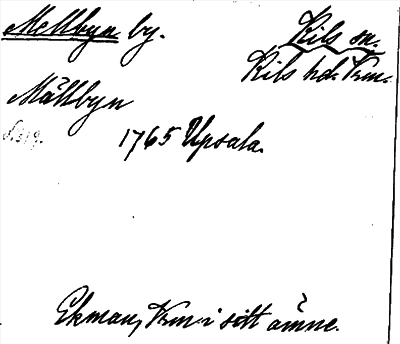 Mellbyn by.
Kils sn.
Kils hd. Vrm.
Mällbyn
1765 Upsala.
Ekman, Vrm. i sitt ämne.